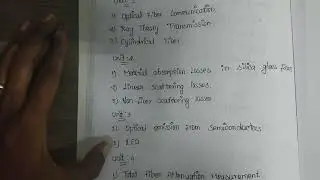 1) Optical Fiber Communication.
2) Ray Theory Transmission.
3) Cylindrical Fiber.
Unit - 2
1) Material absorption losses in silica glass
2) Linear scattering losses.
3) Non-liner scattering losses
Unit : 3
1) Optical emission from Semiconductors
2) LED
Unit : 4
1) Total Fiber Attenuation Measurement